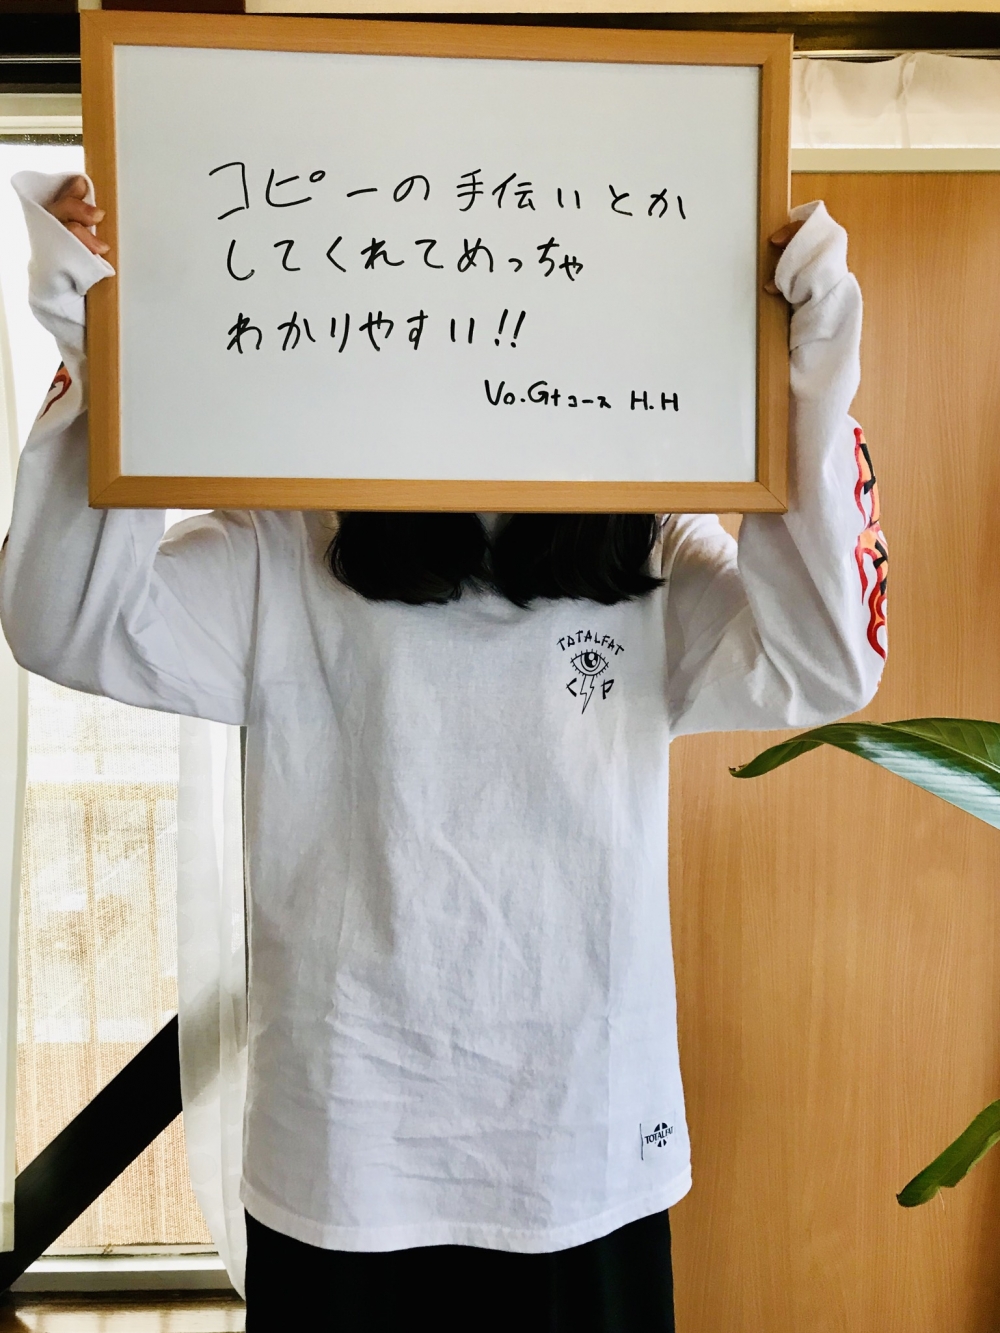 コピーの手伝いとか
してくれてめっちゃ
わかりやすい!!
Vo.Gtコース H.H
TOTALFAT
C P
TOTALFAT